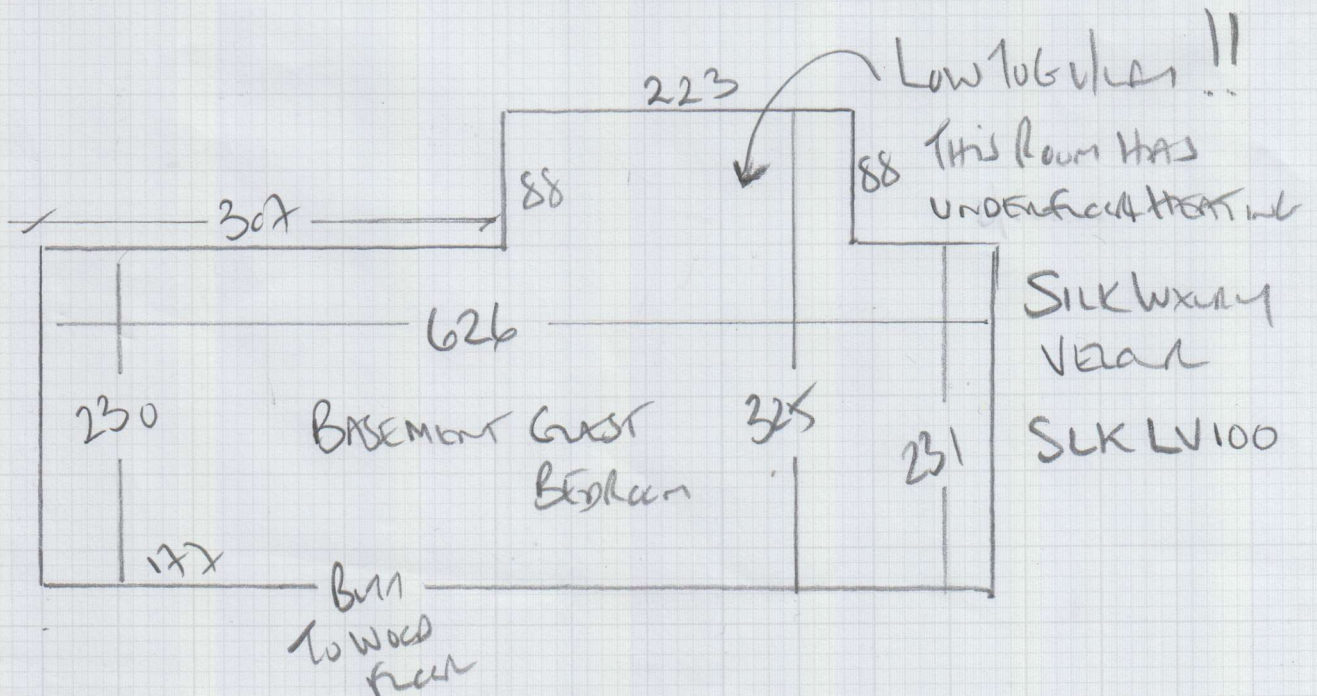 223
LOW TOG U/LAY !!
THIS ROOM HAS
UNDERFLOOR HEATING
88
88
307
SILK LUXURY
VELOUR
626
230
BASEMENT GUEST
BEDROOM
325
231
SLK LV100
177
BUTT
TO WOOD
FLOOR